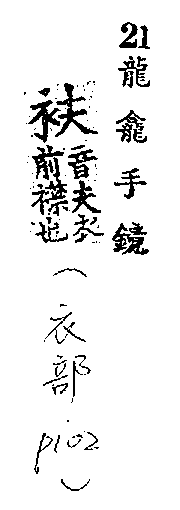 21龍龕手鏡
衭音夫衣前襟也
(衣部p102)